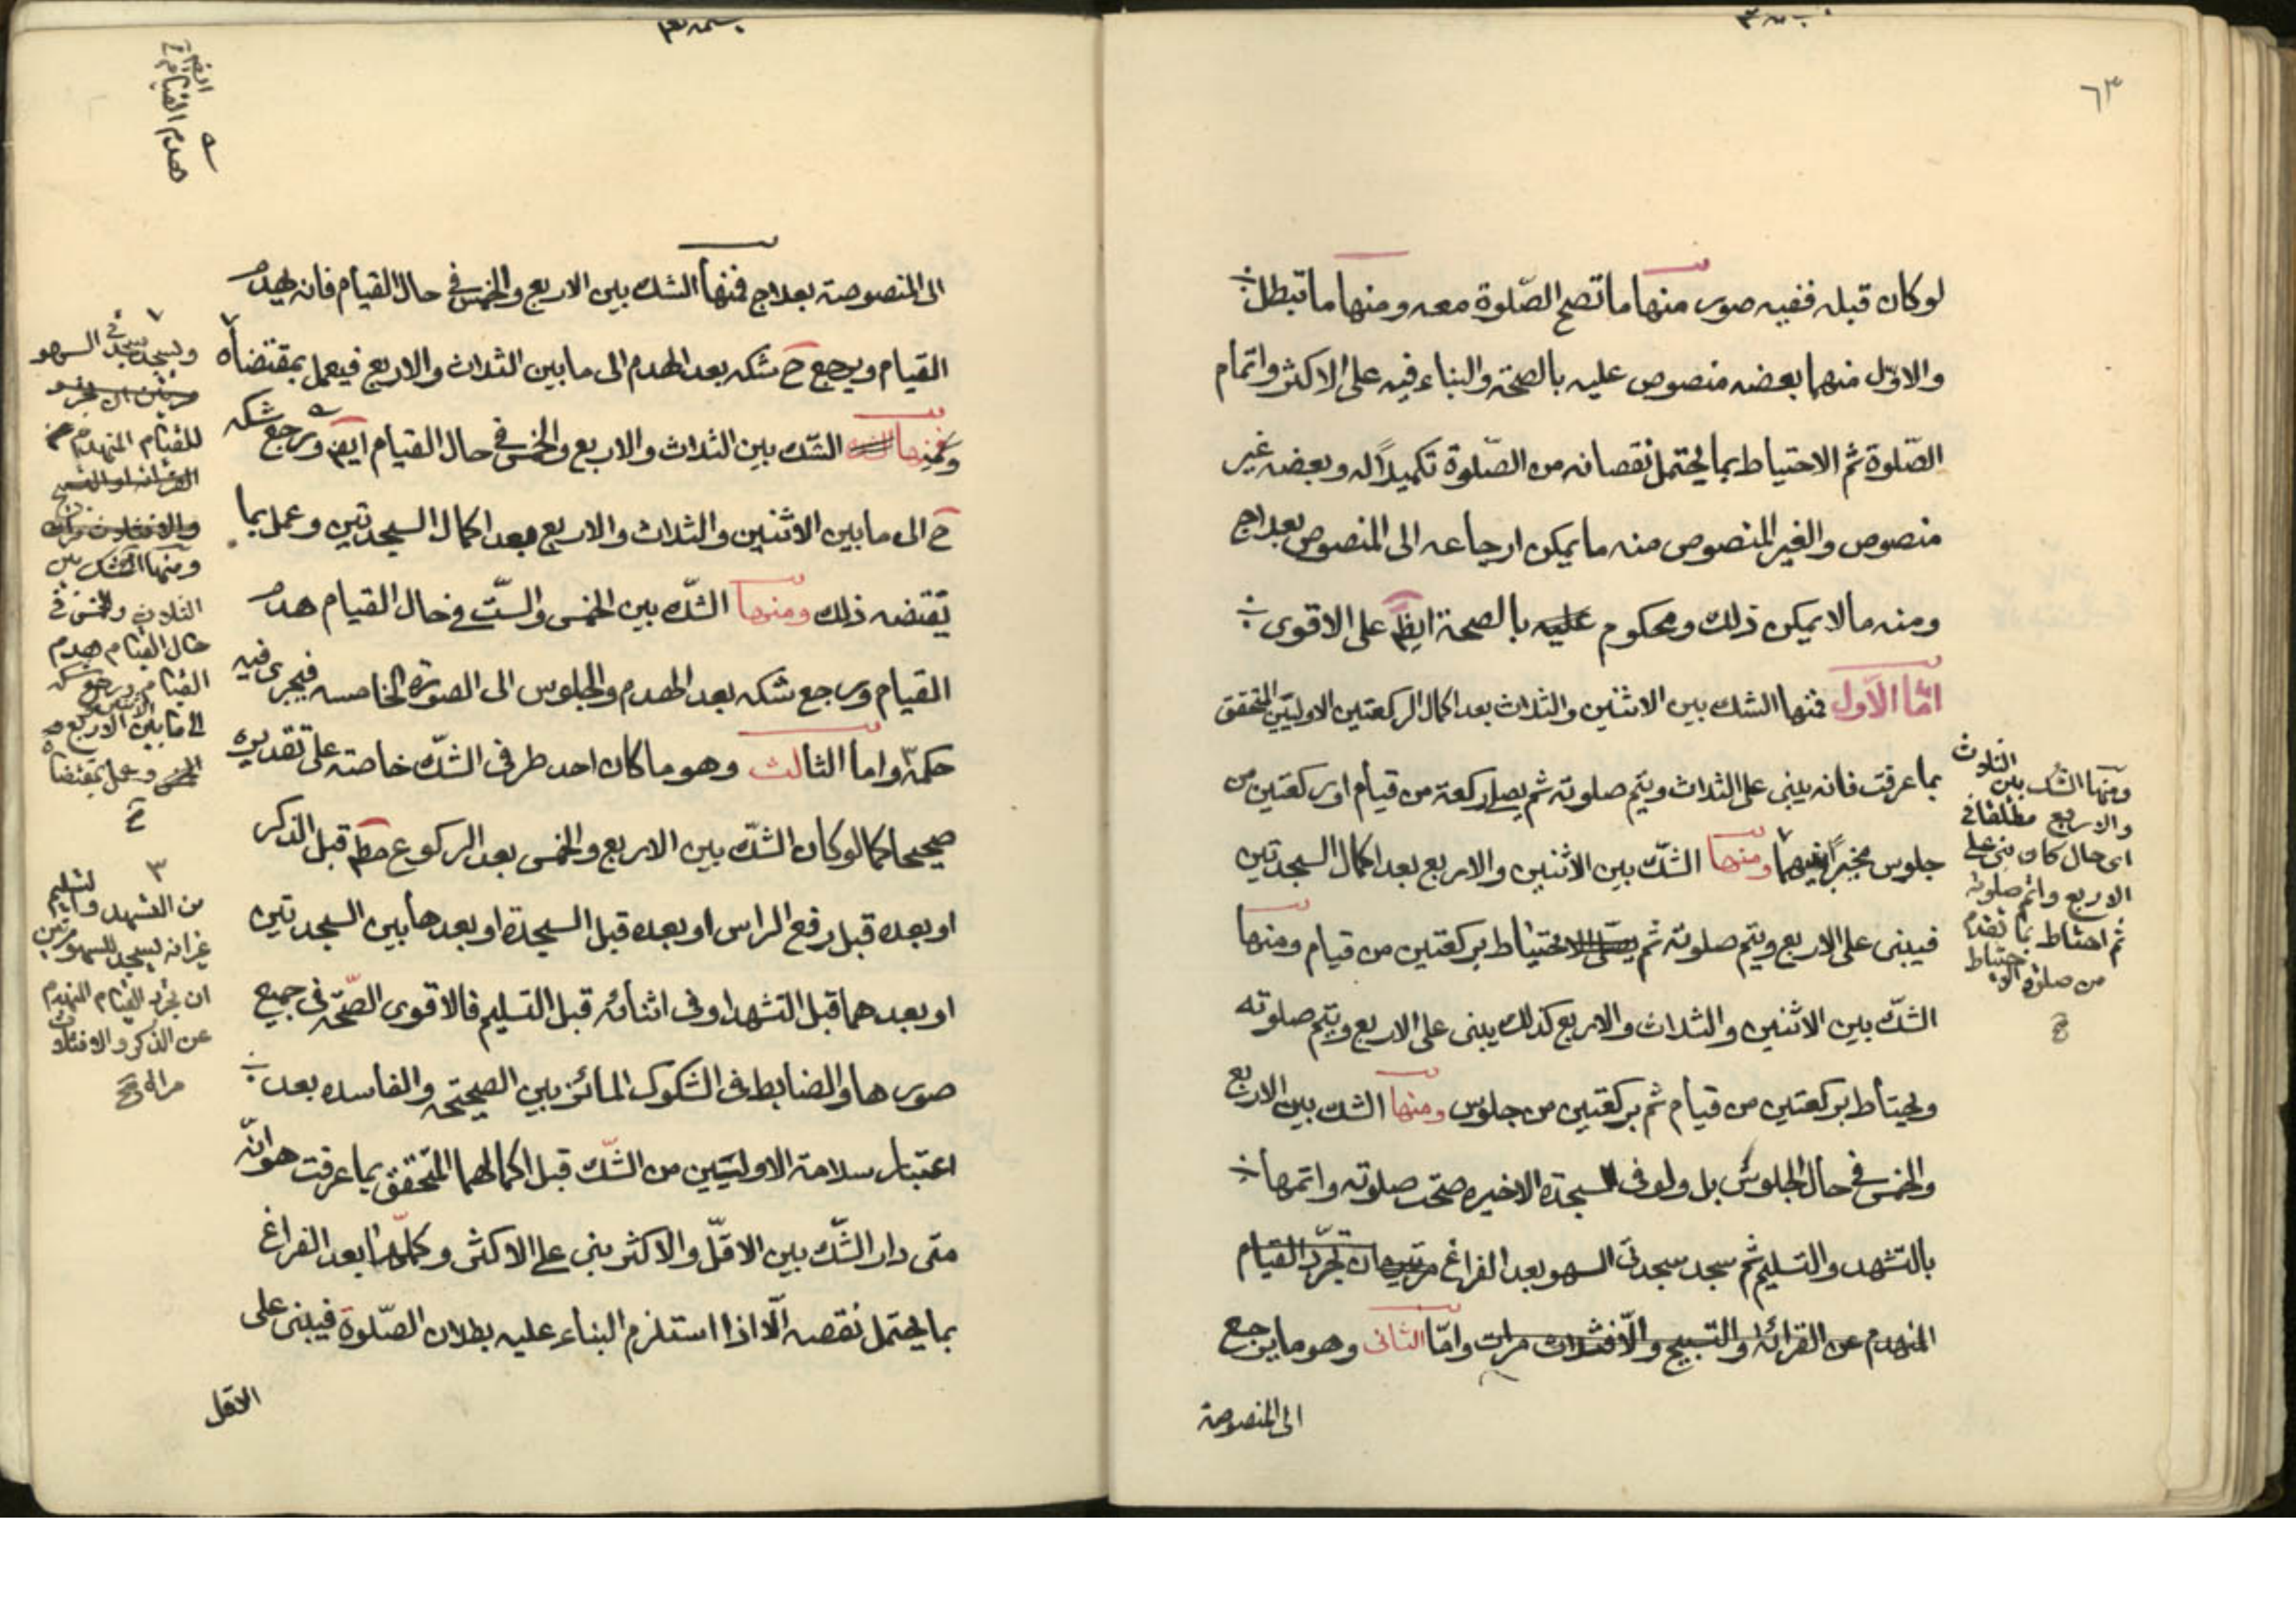 ٦٣
لوكان قبله ففيه صور منها ما تصح الصّلوة معه ومنها ما تبطل
والاوّل منهما بعضه منصوص عليه بالصحة والبناء فيه على الاكثر واتمام
الصّلوة ثم الاحتياط بما يحتمل نقصانه من الصّلوة تكميلاً له وبعضه غير
منصوص والغير المنصوص منه ما يمكن ارجاعه الى المنصوص بعلاج
ومنه مالا يمكن ذلك ومحكوم عليه بالصحة ايضاً على الاقوى
امّا الاوّل فمنها الشك بين الاثنين والثلاث بعد اكمال الركعتين الاوليين المتحقق
بما عرفت فانه يبنى على الثلاث ويتم صلوته ثم يصلى ركعة من قيام او ركعتين من
جلوس مخيراً فيهما ومنها الشكّ بين الاثنين والاربع بعد اكمال السجدتين
فيبنى على الاربع ويتم صلوته ثم الاحتياط بركعتين من قيام ومنها
الشكّ بين الاثنين والثلاث والاربع كذلك يبنى على الاربع ويتم صلوته
ويحتاط بركعتين من قيام ثم بركعتين من جلوس ومنها الشك بين الاربع
والخمس في حال الجلوس بل ولو فى السجدة الاخيره صحت صلوته واتمها
بالتشهد والتسليم ثم سجد سجدتى السهو بعد الفراغ مرتين ان تجرّد القيام
المنهدم عن القرائه او التسبيح والّا فثلاث مرات وامّا الثانى وهو ما يرجع
الى المنصوصة
ومنها الشك بين الثلاث
والاربع مطلقا في
اى حال كان بنى على
الاربع واتم صلوته
ثم احتاط بما تقدم
من صلوة الاحتياط
صح
الى المنصوصة بعلاج فمنها الشك بين الاربع والخمس في حال القيام فانه يهدم
القيام ويرجع ح شكه بعد الهدم الى ما بين الثلاث والاربع فيعمل بمقتضاه
ومنها الشّك بين الثلاث والاربع والخمس في حال القيام ايضً ويرجع شكه
ح الى ما بين الاثنين والثلاث والاربع بعد اكمال السجدتين وعمل بما
يقتضه ذلك ومنها الشّك بين الخمس والستّ في حال القيام هدم
القيام ويرجع شكه بعد الهدم والجلوس الى الصورة الخامسه فيجرى فيه
حكمه وامّا الثالث وهو ما كان احد طرفى الشكّ خاصة على تقديره
صحيحا كما لو كان الشكّ بين الاربع والخمس بعد الركوع مطم قبل الذكر
او بعده قبل رفع الراس او بعده قبل السجدة او بعدها بين السجدتين
او بعدهما قبل التشهد او فى اثنائه قبل التسليم فالاقوى الصّحّة فى جميع
صورها والضابط فى الشكوك المائز بين الصحيحه والفاسده بعد
اعتبار سلامة الاوليين من الشّك قبل اكمالهما المتحقق بما عرفت هو انّه
متى دار الشّك بين الاقلّ والاكثر بنى على الاكثر وكمّلها بعد الفراغ
بما يحتمل نقصه الّا اذا استلزم البناء عليه بطلان الصّلوة فيبنى على
الاقل
هدم القيام
ويسجد سجدتى السهو
للقيام المنهدم
ومنها الشك بين
الثلاث والخمس في
حال القيام هدم
القيام ويرجع شكه
الى ما بين الاربع
وعمل بمقتضاه
صح
من التشهد والتسليم
غير انه يسجد للسهو مرتين
ان تجرد القيام المنهدم
عن الذكر والا فثلاث
صح